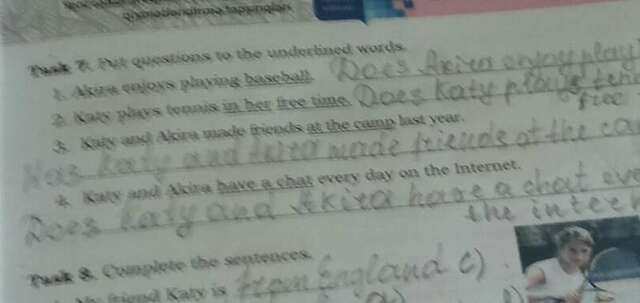 Task 7. Put questions to the underlined words.
1. Akira enjoys playing baseball. Does Akira enjoy play
2. Katy plays tennis in her free time. Does Katy plays ten
free
3. Katy and Akira made friends at the camp last year.
Has Katy and Akira made friends at the ca
4. Katy and Akira have a chat every day on the Internet.
Does Katy and Akira have a chat eve
the inter
Task 8. Complete the sentences.
My friend Katy is from England c)